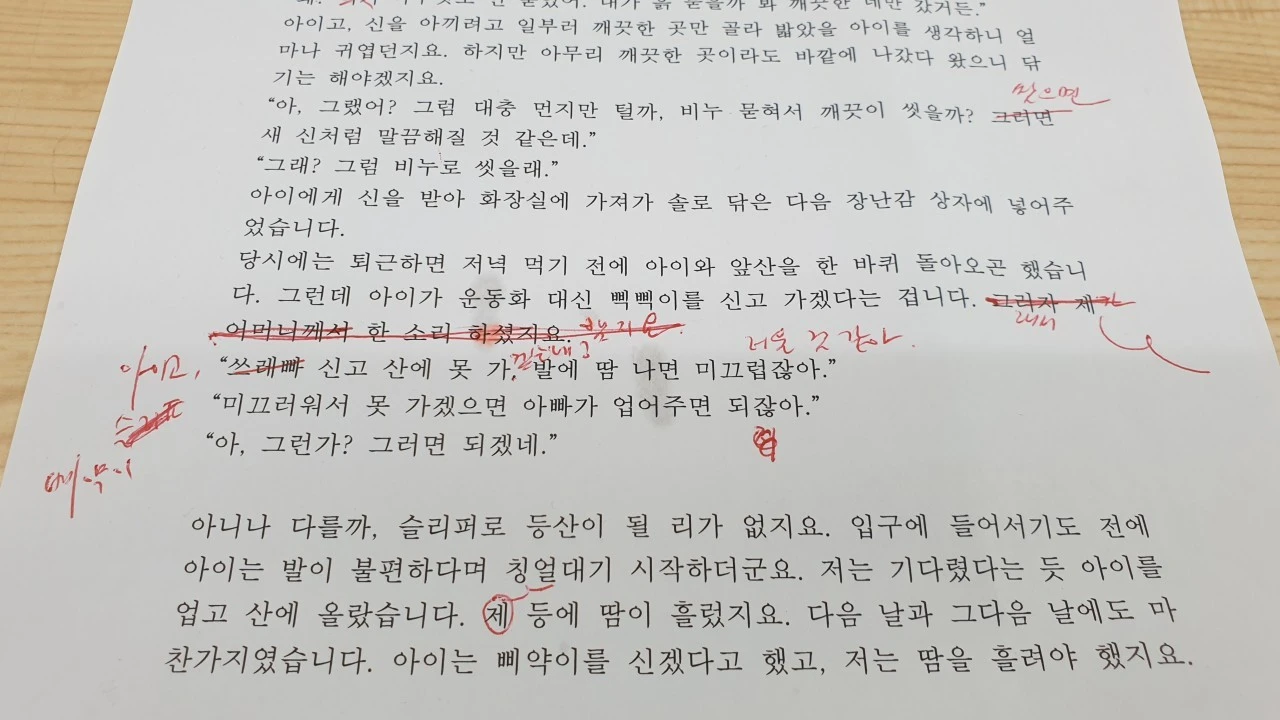 아이고, 신을 아끼려고 일부러 깨끗한 곳만 골라 밟았을 아이를 생각하니 얼
마나 귀엽던지요. 하지만 아무리 깨끗한 곳이라도 바깥에 나갔다 왔으니 닦
기는 해야겠지요.
맞으면
“아, 그랬어? 그럼 대충 먼지만 털까, 비누 묻혀서 깨끗이 씻을까? 그러면
새 신처럼 말끔해질 것 같은데.”
“그래? 그럼 비누로 씻을래.”
아이에게 신을 받아 화장실에 가져가 솔로 닦은 다음 장난감 상자에 넣어주
었습니다.
당시에는 퇴근하면 저녁 먹기 전에 아이와 앞산을 한 바퀴 돌아오곤 했습니
다. 그런데 아이가 운동화 대신 삑삑이를 신고 가겠다는 겁니다. 그러자 제
어머니께서 한 소리 하셨지요.
아이고,
“쓰레빠 신고 산에 못 가, 발에 땀 나면 미끄럽잖아.”
“미끄러워서 못 가겠으면 아빠가 업어주면 되잖아.”
“아, 그런가? 그러면 되겠네.”
아니나 다를까, 슬리퍼로 등산이 될 리가 없지요. 입구에 들어서기도 전에
아이는 발이 불편하다며 칭얼대기 시작하더군요. 저는 기다렸다는 듯 아이를
업고 산에 올랐습니다. 제 등에 땀이 흘렀지요. 다음 날과 그다음 날에도 마
찬가지였습니다. 아이는 삐약이를 신겠다고 했고, 저는 땀을 흘려야 했지요.